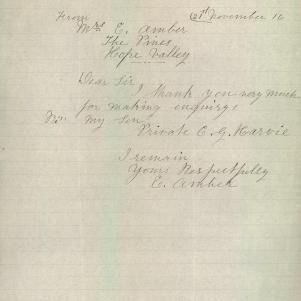 From 21st November 16
Mrs E. Amber
The Pines
Hope Valley
Dear Sir
I thank you very much
for making enquirys
my Son
Private C. G. Harvie
I remain
Yours Respectfully
E. Amber